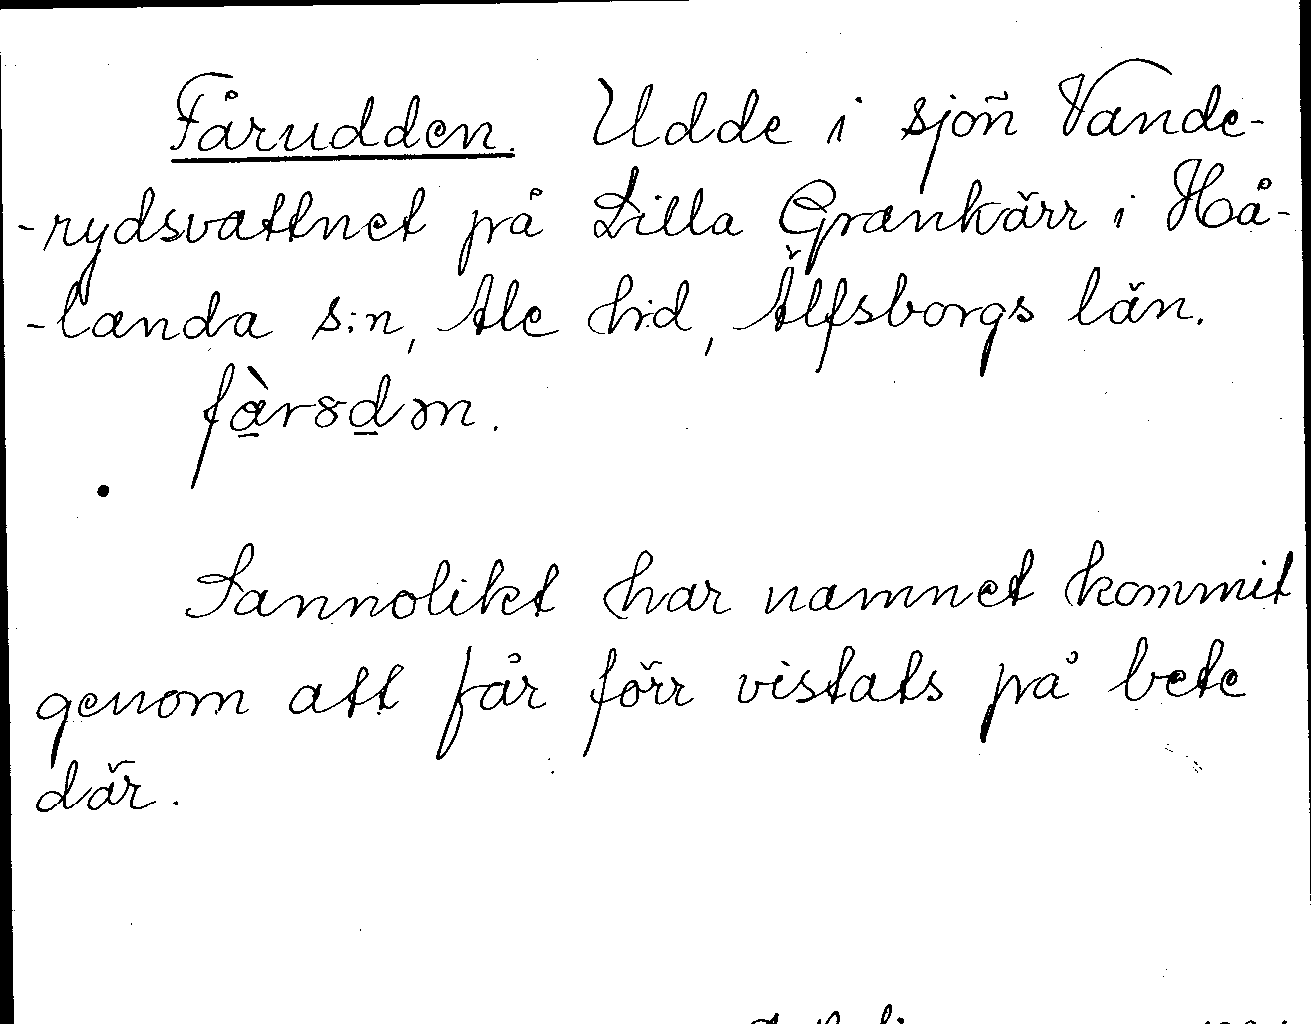 Fårudden. Udde i sjön Vande-
-rydsvattnet på Lilla Grankärr i Hå-
-landa s:n, Ale h:d, Älfsborgs län.
fàrɞdɔn.
Sannolikt har namnet kommit
genom att får förr vistats på bete
där.